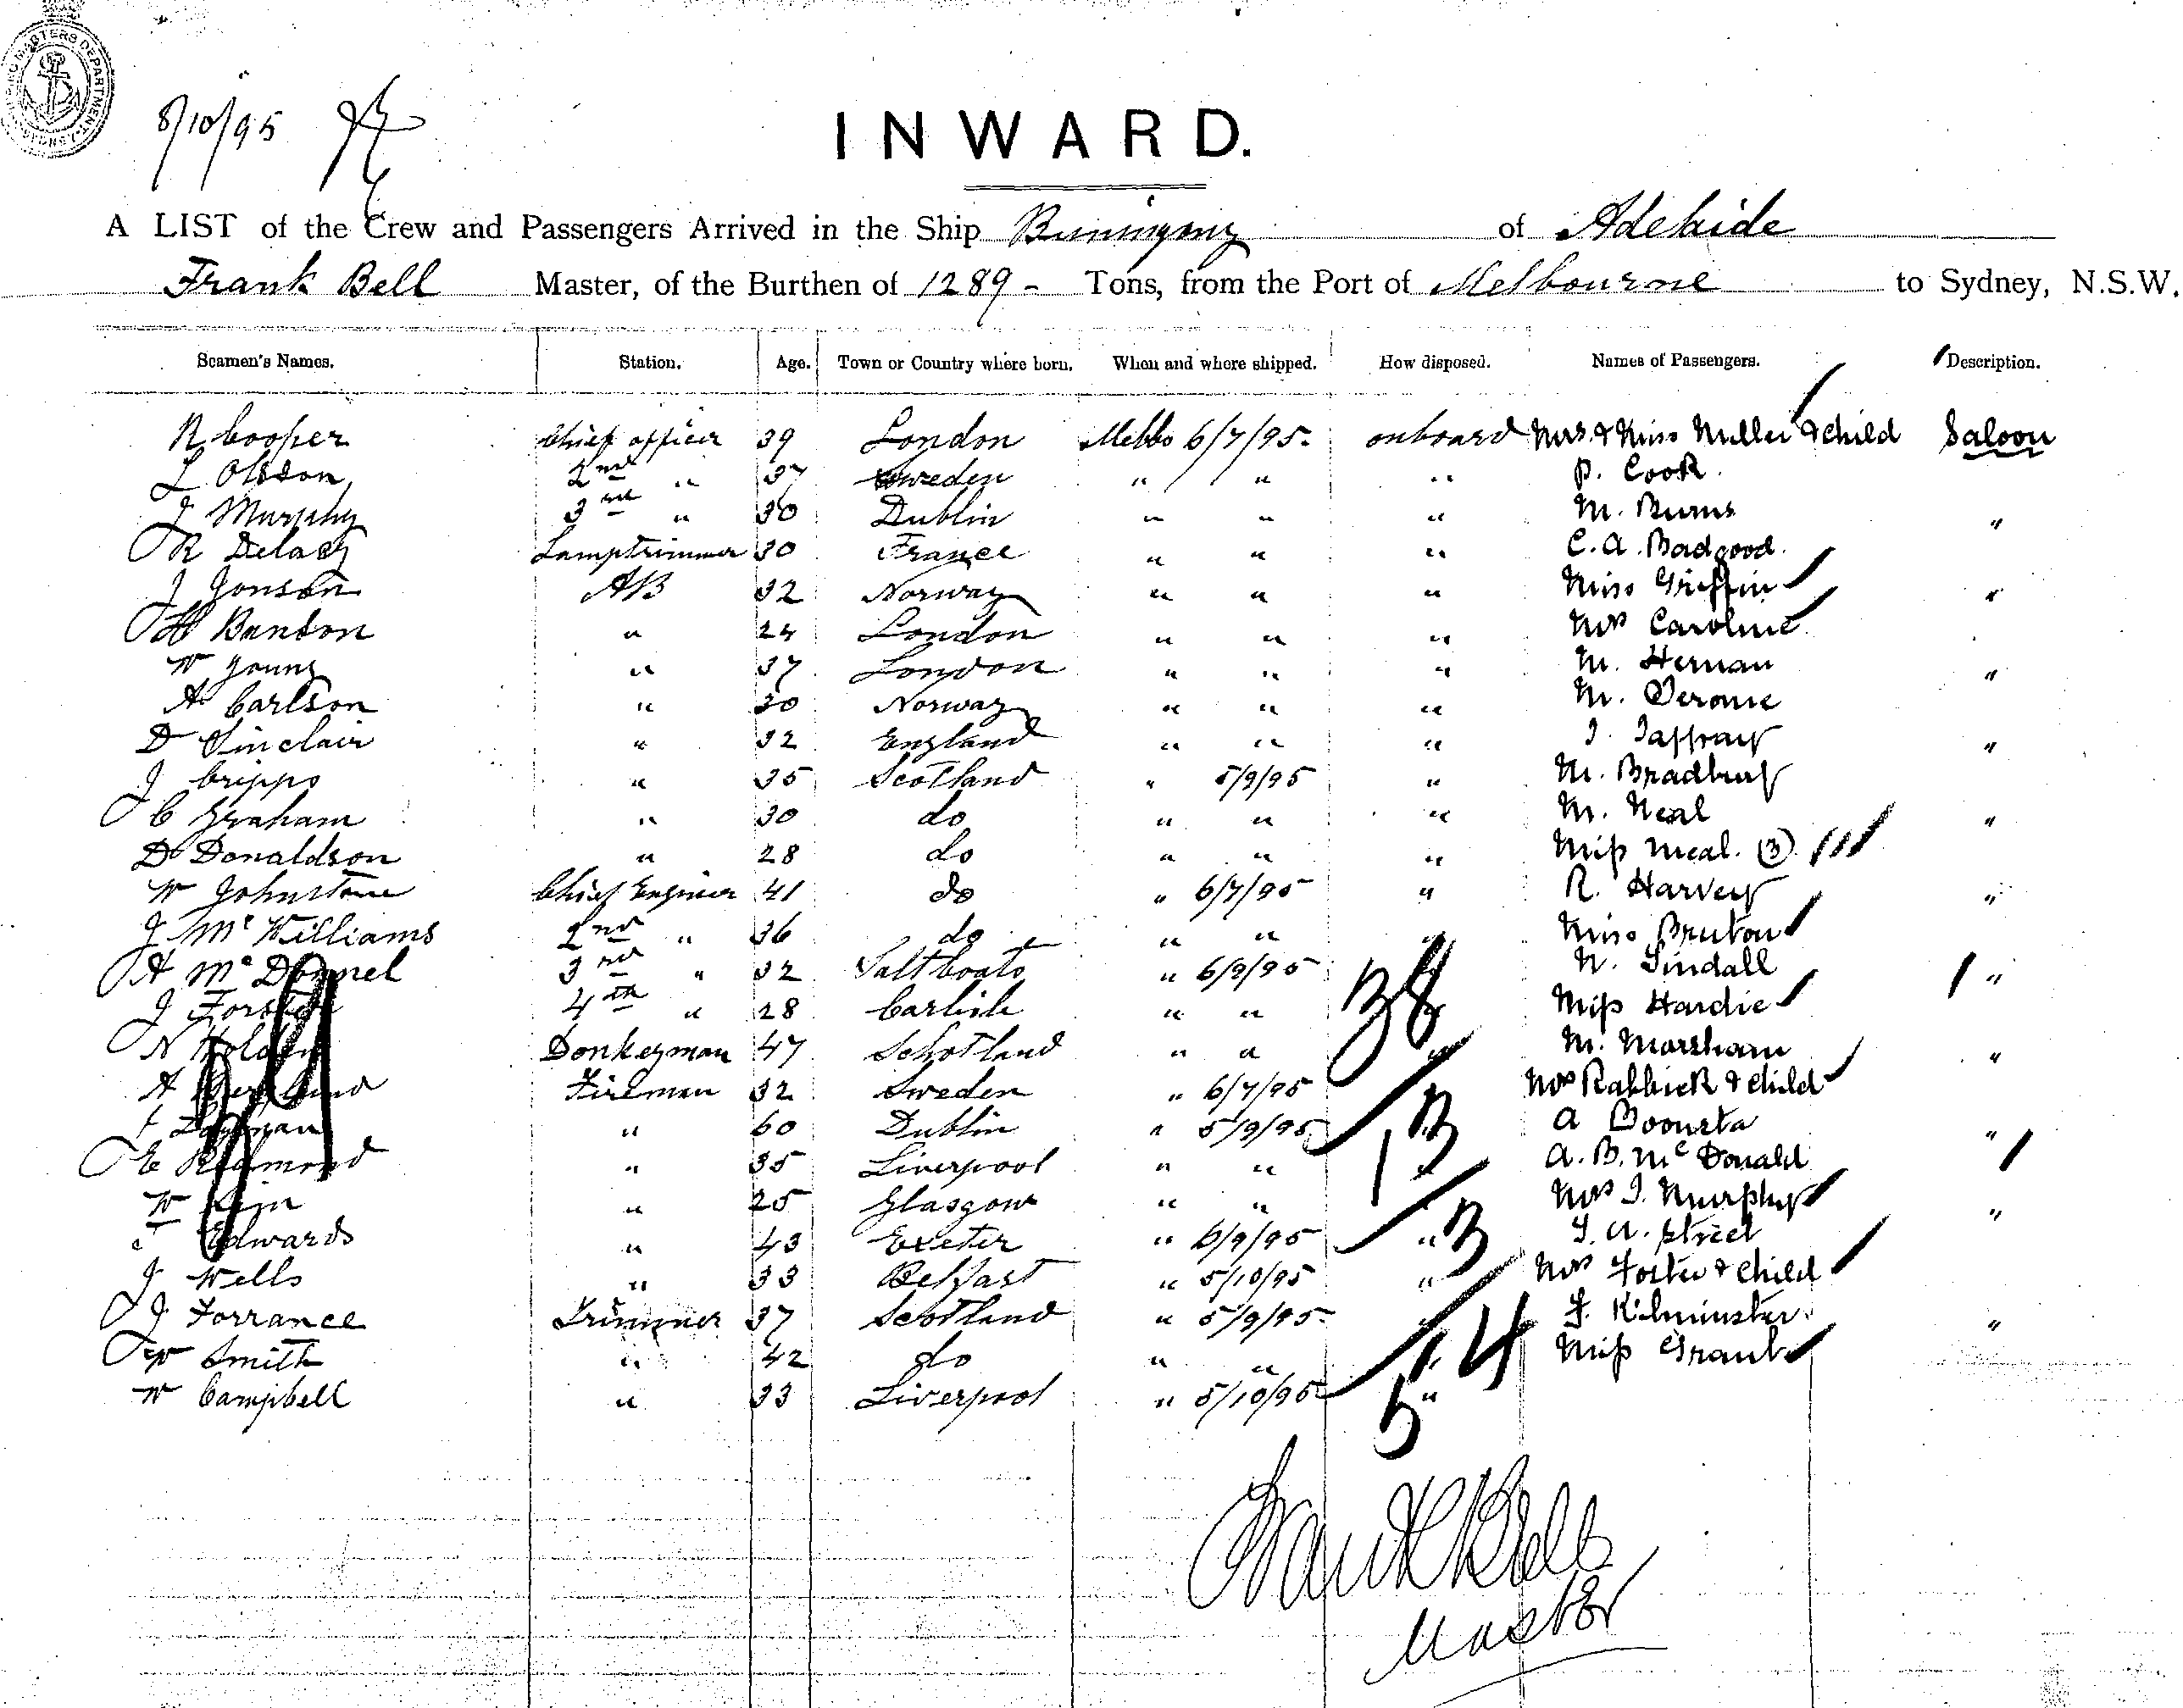 8/10/95
INWARD.
A LIST of the Crew and Passengers Arrived in the Ship Buninyong of Adelaide
Frank Bell Master, of the Burthen of 1289 - Tons, from the Port of Melbourne to Sydney, N.S.W.
Seamen's Names. Station. Age. Town or Country where born. When and where shipped. How disposed. Names of Passengers. Description.
R Cooper Chief officer 39 London Melbo 6/7/95. onboard Mrs & Miss Miller & child Saloon
L Olsson 2nd " 37 Sweden " " " P. Cook
J Murphy 3rd " 30 Dublin " " " M. Burns "
R Delacy Lamptrimmer 30 France " " " C. A. Badgood.
J Jonson AB 32 Norway " " " Miss Griffin "
H Banton " 24 London " " " Mrs Caroline
W Young " 37 London " " " M. Hernan "
A Carlson " 30 Norway " " " M. Jerome
D Sinclair " 32 England " " " J. Jaffray "
J Cripps " 35 Scotland " 5/9/95 " M. Bradbury
C Graham " 30 do " " " M. Neal "
D Donaldson " 28 do " " " Miss Meal. (3)
W Johnstone Chief Engineer 41 do " 6/7/95 " R. Harvey "
J McWilliams 2nd " 36 do " " " Miss Bruton
A McDonnel 3rd " 32 Saltboats " 6/9/95 W. Lindall "
J 4th " 28 Carlisle " " 38 Miss Hardie
N Donkeyman 47 Schotland " " " M. Marsham "
A Fireman 32 Sweden " 6/7/95 Mrs Rabbick & child
" 60 Dublin " 5/9/95 13 A Boonsta "
E Redmond " 35 Liverpool " " " A. B. McDonald
W " 25 Glasgow " " Mrs J. Murphy "
Edwards " 43 Exeter " 6/9/95 " 3 J. A. Street
J Wells " 33 Belfast " 5/10/95 " Mrs Foster & child
J Torrance Trimmer 37 Scotland " 5/9/95 F. Kilminster "
W Smith " 42 do " " 14 Miss Grant
W Campbell " 33 Liverpool " 5/10/95 5 "
Frank Bell
Master